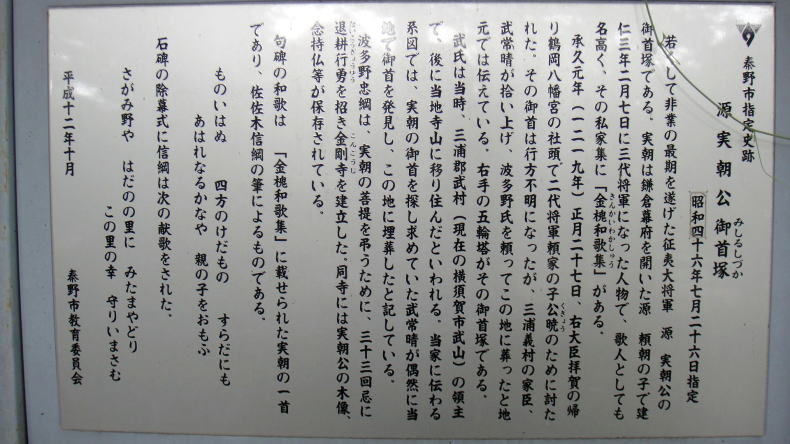 秦野市指定史跡
源実朝公御首塚
みしるしづか
昭和四十六年七月二十六日指定
若くして非業の最期を遂げた征夷大将軍 源 実朝公の
御首塚である。実朝は鎌倉幕府を開いた源 頼朝の子で建
仁三年二月七日に三代将軍になった人物で、歌人としても
名高く、その私家集に「金槐和歌集」がある。
きんかいわかしゅう
承久元年（一二一九年）正月二十七日、右大臣拝賀の帰
り鶴岡八幡宮の社頭で二代将軍頼家の子公暁のために討た
くぎょう
れた。その御首は行方不明になったが、三浦義村の家臣、
武常晴が拾い上げ、波多野氏を頼ってこの地に葬ったと地
元では伝えている。右手の五輪塔がその御首塚である。
武氏は当時、三浦郡武村（現在の横須賀市武山）の領主
で、後に当地寺山に移り住んだといわれる。当家に伝わる
系図では、実朝の御首を探し求めていた武常晴が偶然に当
地で御首を発見し、この地に埋葬したと記している。
波多野忠綱は、実朝の菩提を弔うために、三十三回忌に
退耕行勇を招き金剛寺を建立した。同寺には実朝公の木像、
たいこうぎょうゆう
こんごうじ
念持仏等が保存されている。
句碑の和歌は 「金槐和歌集」に載せられた実朝の一首
であり、佐佐木信綱の筆によるものである。
ものいはぬ 四方のけだもの すらだにも
あはれなるかなや 親の子をおもふ
石碑の除幕式に信綱は次の献歌をされた。
さがみ野や はだのの里に みたまやどり
この里の幸 守りいまさむ
平成十二年十月
秦野市教育委員会